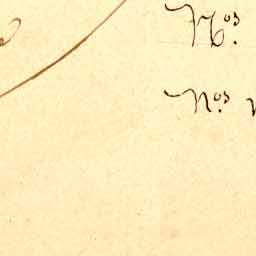 Nos.
Nos.